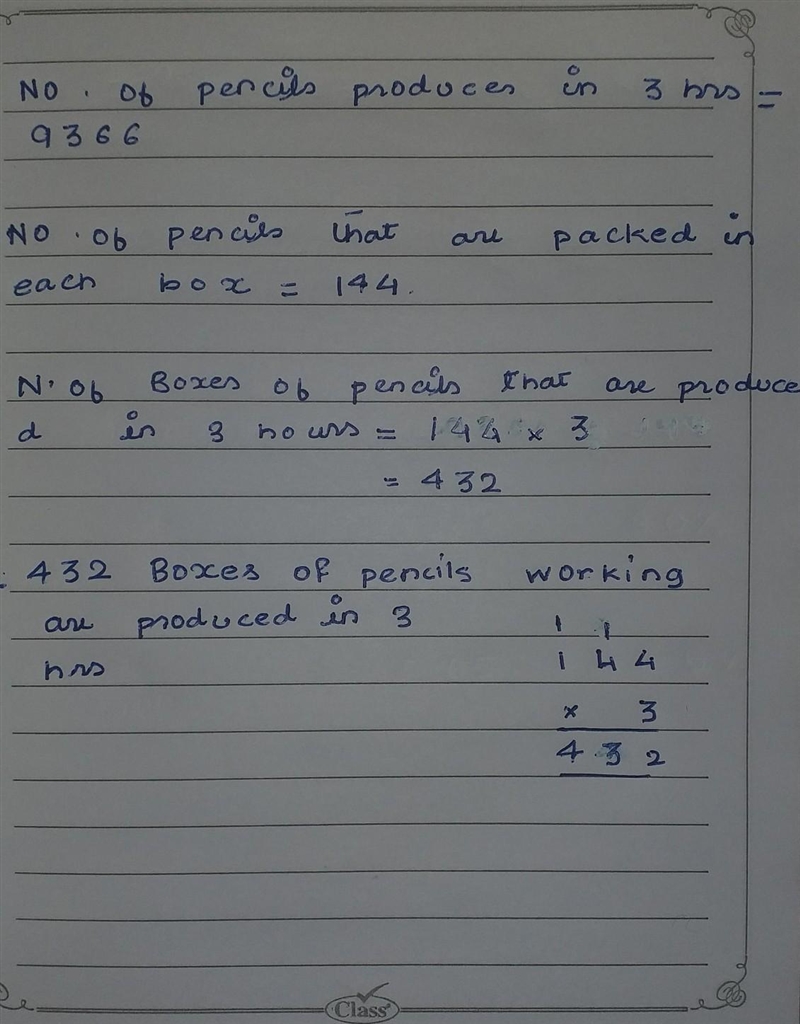 No. of pencils produces in 3 hrs =
9366
No. of pencils that are packed in
each box = 144.
N. of Boxes of pencils that are produce
d in 3 hours = 144 x 3
= 432
: 432 Boxes of pencils working
are produced in 3
hrs
1 1
1 4 4
x 3
4 3 2
Class